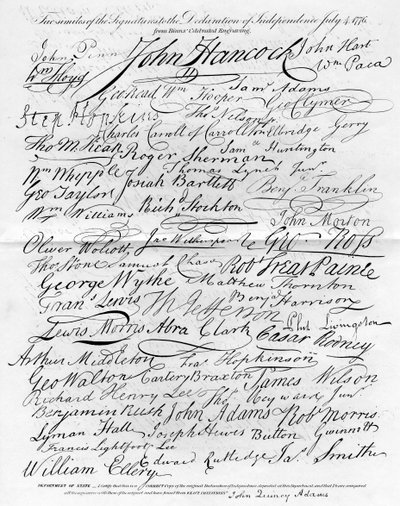 Facsimiles of the Signatures to the Declaration of Independence July 4. 1776.
from Binns' Celebrated Engraving.
John Penn John Hancock John Hart
Wm Floyd Wm Paca
Geo Read Wm Hooper Saml Adams
Step Hopkins Thos Nelson jr. Geo Clymer
Charles Carroll of Carrollton Elbridge Gerry
Tho M:Kean Roger Sherman Saml Huntington
Wm Whipple Thomas Lynch Junr.
Geo Taylor Josiah Bartlett Benj Franklin
Wm Williams Richd Stockton John Morton
Oliver Wolcott Jno Witherspoon Geo Ross
Thos Stone Samuel Chase Robt Treat Paine
George Wythe Matthew Thornton
Frans Lewis Th Jefferson Benj Harrison
Lewis Morris Abra Clark Phil Livingston
Casar Rodney
Arthur Middleton Fras Hopkinson
Geo Walton Carter Braxton James Wilson
Richard Henry Lee Thos Heyward Junr.
Benjamin Rush John Adams Robt Morris
Lyman Hall Joseph Hewes Button Gwinnett
Francis Lightfoot Lee
William Ellery Edward Rutledge Jas Smith
DEPARTMENT OF STATE I Certify that this is a CORRECT Copy of the original Declaration of Independence deposited at this Department and that I have compared
all the signatures with those of the original and have found them EXACT IMITATIONS. John Quincy Adams